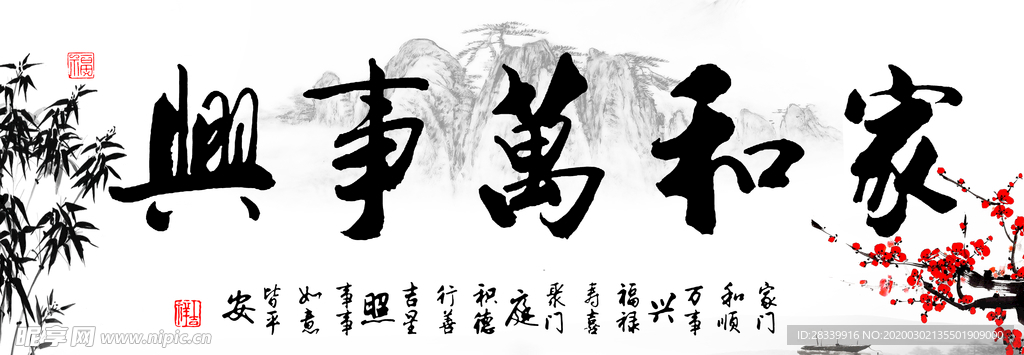 家和萬事興
家门
和顺
万事
兴
福禄
寿喜
聚门
庭
积德
行善
吉星
照
事事
如意
皆平
安
福
吉祥
昵享网 www.nipic.cn
ID:28339916 NO:20200302135501909000